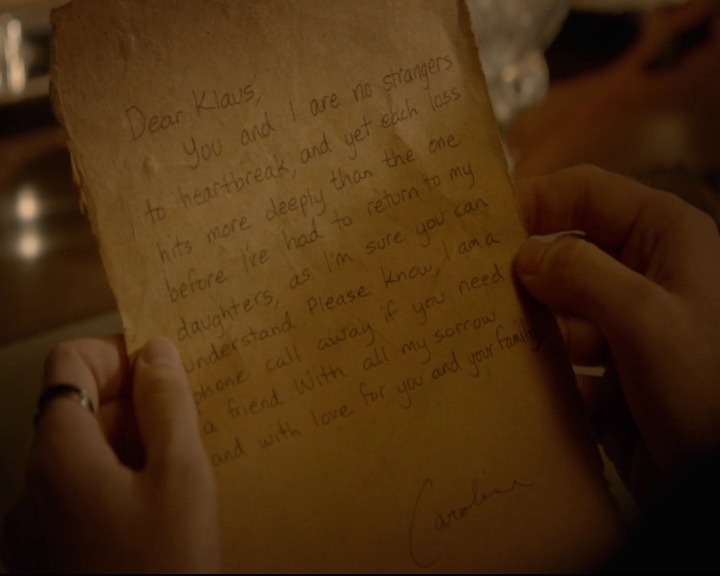 Dear Klaus,
You and I are no strangers
to heartbreak, and yet each loss
hits more deeply than the one
before I've had to return to my
daughters, as I'm sure you can
understand. Please know, I am a
phone call away if you need
a friend With all my sorrow
and with love for you and your family
Caroline